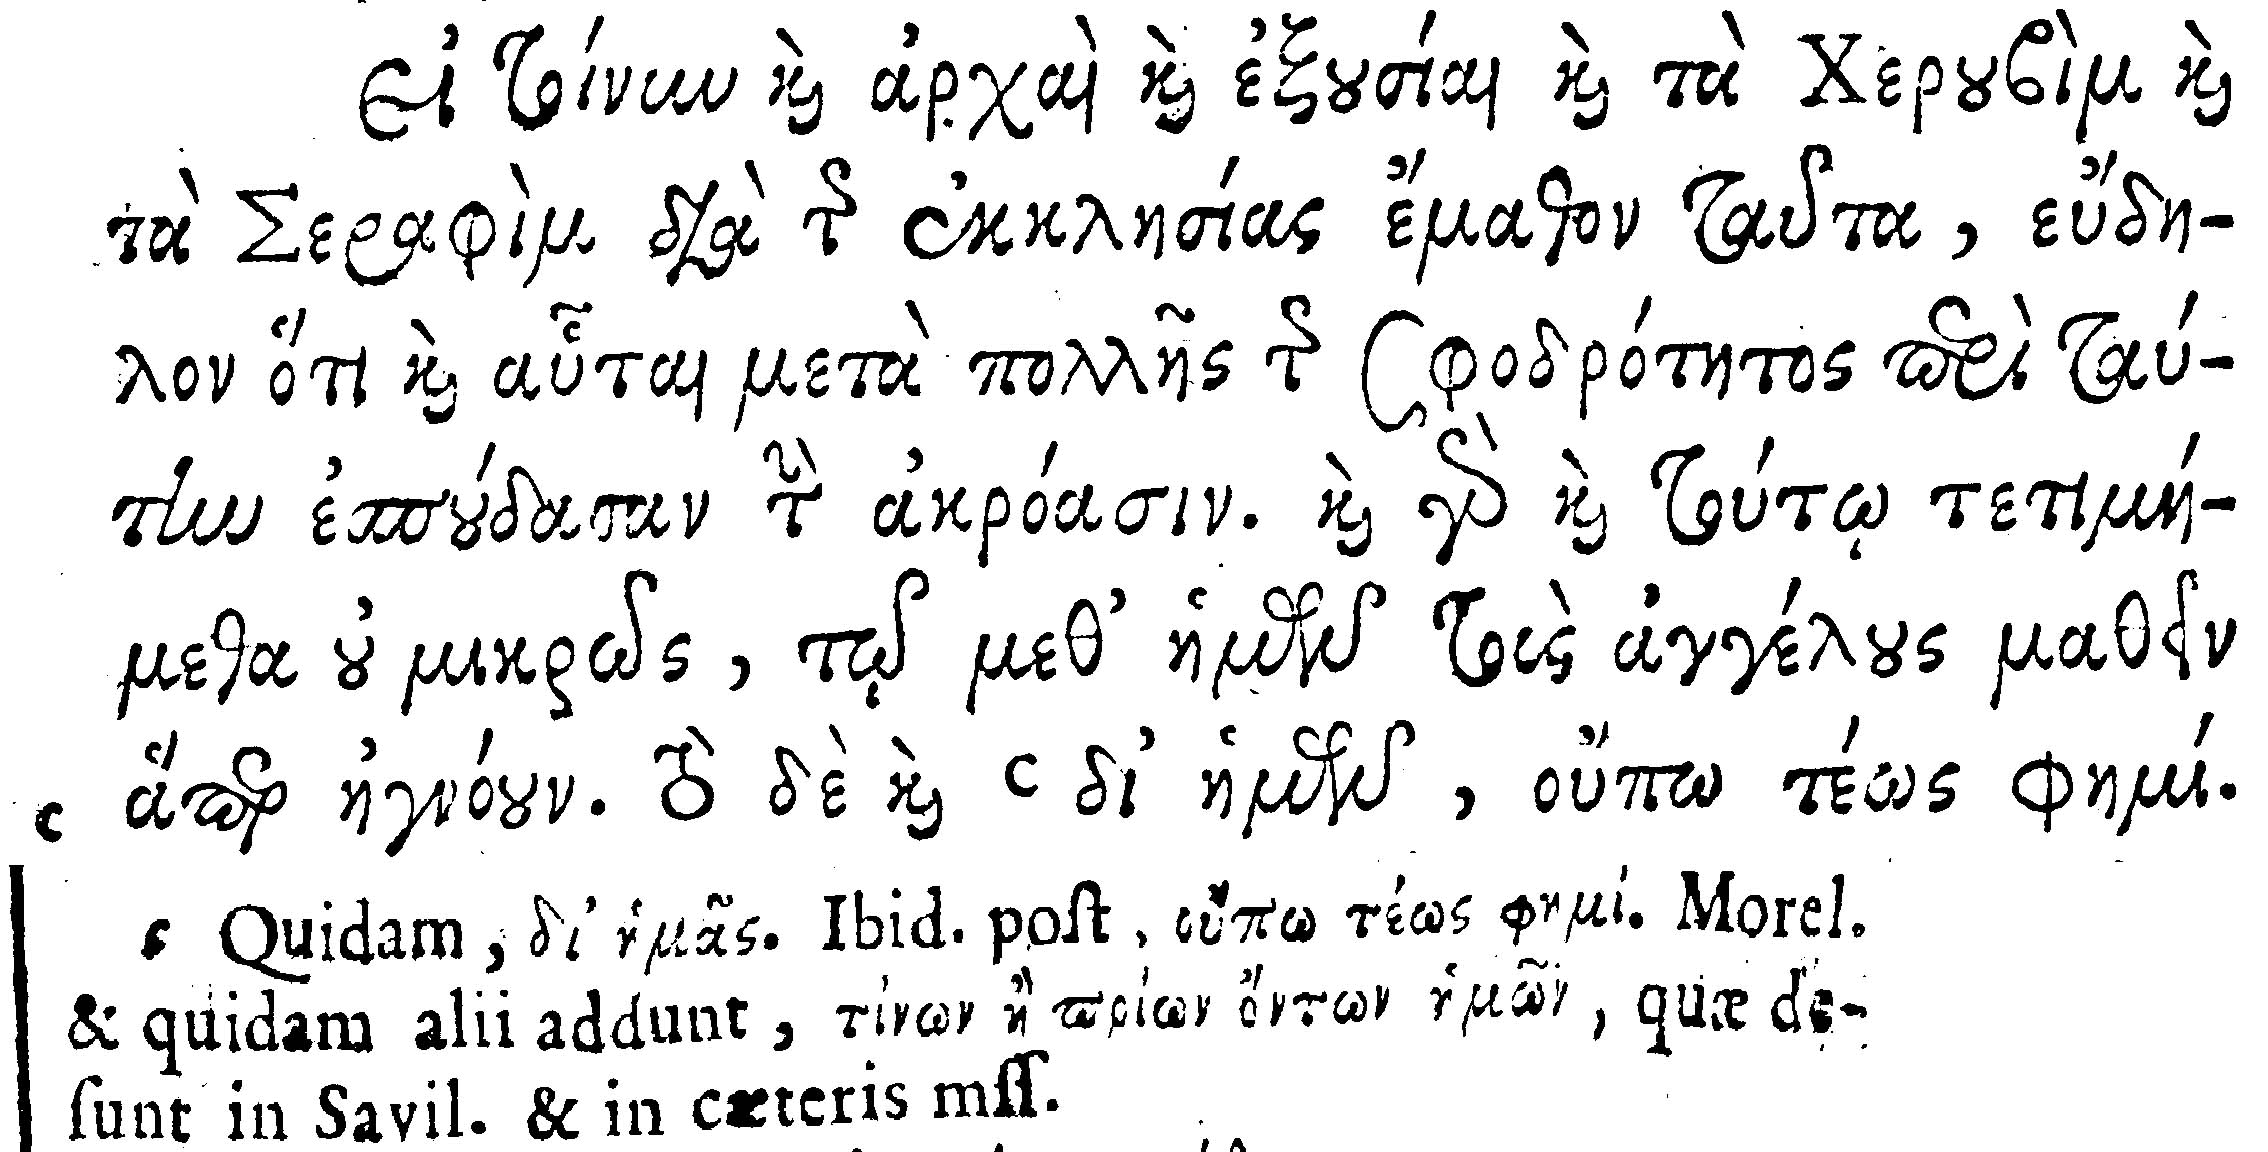 Εἰ τοίνυν καὶ ἀρχαὶ καὶ ἐξουσίαι καὶ τὰ Χερουβὶμ καὶ
τὰ Σεραφὶμ διὰ τῆς ἐκκλησίας ἔμαθον ταῦτα, εὔδη-
λον ὅτι καὶ αὗται μετὰ πολλῆς τῆς σφοδρότητος περὶ ταύ-
την ἐσπούδασαν τὴν ἀκρόασιν. καὶ γὰρ καὶ τούτῳ τετιμή-
μεθα οὐ μικρῶς, τῷ μεθ' ἡμῶν τοὺς ἀγγέλους μαθεῖν
c ἅπερ ἠγνόουν. τὸ δὲ καὶ c δι' ἡμῶν, οὔπω τέως φημί.
c Quidam, δι' ἡμᾶς. Ibid. poſt, οὔπω τέως φημί. Morel.
& quidam alii addunt, τίνων ἢ ποίων ὄντων ἡμῶν, quæ de-
ſunt in Savil. & in cæteris mſſ.